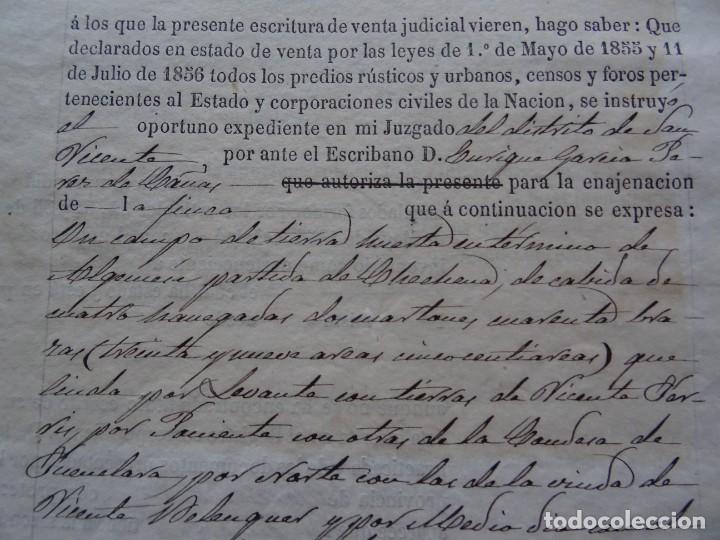 á los que la presente escritura de venta judicial vieren, hago saber: Que
declarados en estado de venta por las leyes de 1.º de Mayo de 1855 y 11
de Julio de 1856 todos los predios rústicos y urbanos, censos y foros per-
tenecientes al Estado y corporaciones civiles de la Nacion, se instruyó
el oportuno expediente en mi Juzgado del distrito de San
Vicente, por ante el Escribano D. Enrique Garcia Pa-
de que autoriza la presente para la enajenacion
de la finca que á continuacion se expresa:
Un campo de tierra huerta en término de
Algemesí partida de Chechena, de cabida de
cuatro hanegadas dos cuartones cuarenta bra-
zas (treinta y nueve areas cinco centiareas) que
linda por Levante con tierras de Vicente Fer-
ris, por Poniente con otras de la Condesa de
Fuenclara, por Norte con las de la viuda de
Vicente Belenguer y por Medio dia
todocoleccion.net